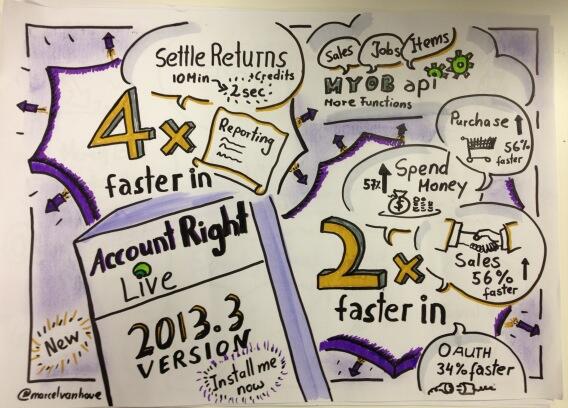 Settle Returns
10 Min → 2 sec
+ Credits
4x
Reporting
faster in
Sales
Jobs
Items
MYOB api
More Functions
Purchase
56%
faster
57%
Spend
Money
$
2x
faster in
Sales
56%
faster
OAUTH
34% faster
Account Right
Live
2013.3
VERSION
Install me
now
New
@marcelvanhove